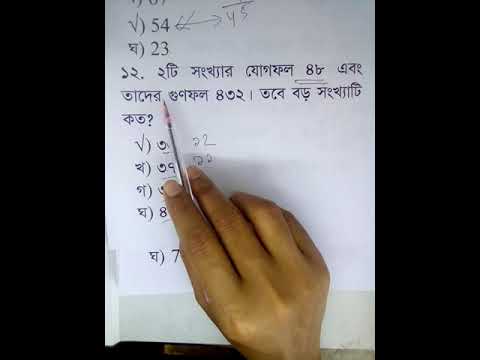 √) 54
ঘ) 23
১২. ২টি সংখ্যার যোগফল ৪৮ এবং
তাদের গুণফল ৪৩২। তবে বড় সংখ্যাটি
কত?
√) ৩ ১২
খ) ৩৭
গ)
ঘ) ৪
ঘ) 7